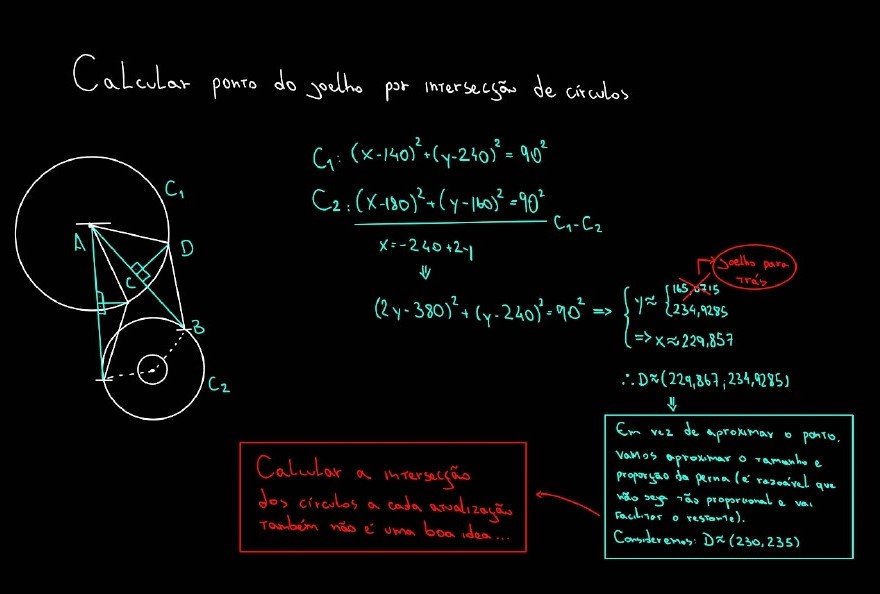 Calcular ponto do joelho por intersecção de círculos
C₁: (x-140)²+(y-240)²=90²
C₂: (x-180)²+(y-160)²=90²
C₁-C₂
x=-240+2y
⇓
(2y-380)²+(y-240)²=90² => { y≈ { 165,0715
234,9285
=> x≈229,857
joelho para
trás
∴ D≈(229,867; 234,9285)
⇓
C₁
A
D
C
B
C₂
Em vez de aproximar o ponto,
vamos aproximar o tamanho e
proporção da perna (é razoável que
não seja tão proporcional e vai
facilitar o restante).
Consideremos: D≈(230,235)
Calcular a intersecção
dos círculos a cada atualização
também não é uma boa idea...